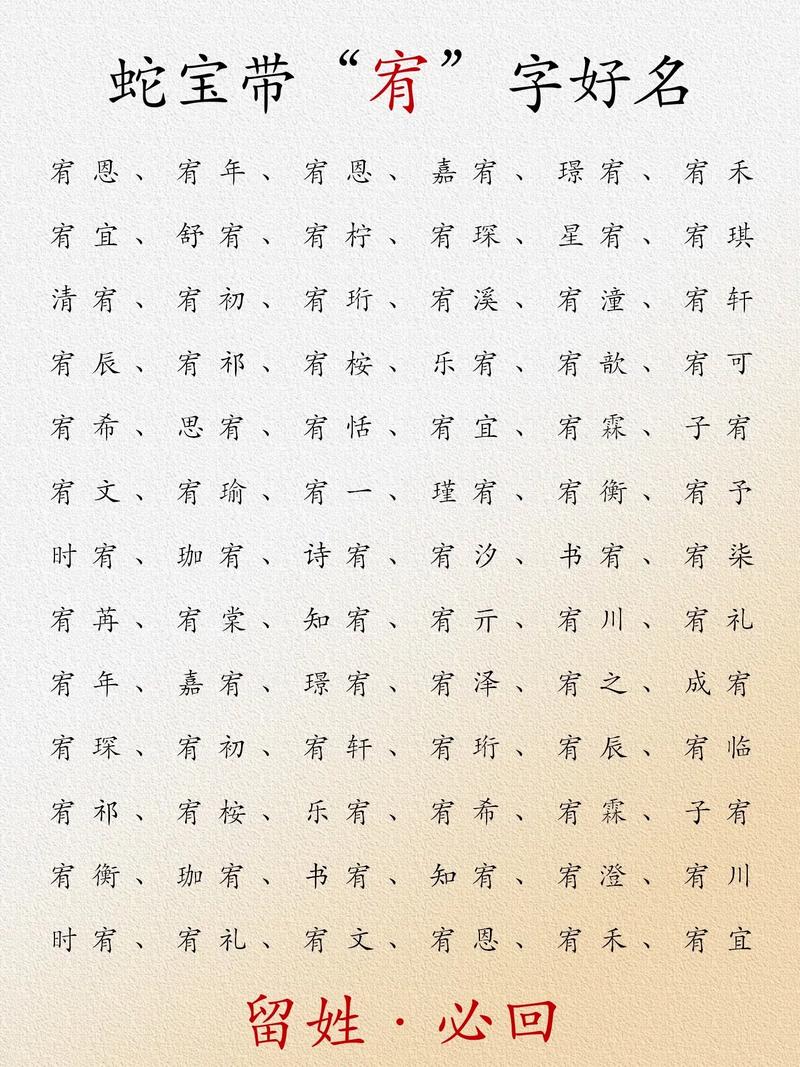 蛇宝带“宥”字好名
宥恩、宥年、宥恩、嘉宥、璟宥、宥禾
宥宜、舒宥、宥柠、宥琛、星宥、宥琪
清宥、宥初、宥珩、宥溪、宥潼、宥轩
宥辰、宥祁、宥桉、乐宥、宥歆、宥可
宥希、思宥、宥恬、宥宜、宥霖、子宥
宥文、宥瑜、宥一、瑾宥、宥衡、宥予
时宥、珈宥、诗宥、宥汐、书宥、宥柒
宥苒、宥棠、知宥、宥亓、宥川、宥礼
宥年、嘉宥、璟宥、宥泽、宥之、成宥
宥琛、宥初、宥轩、宥珩、宥辰、宥临
宥祁、宥桉、乐宥、宥希、宥霖、子宥
宥衡、珈宥、书宥、知宥、宥澄、宥川
时宥、宥礼、宥文、宥恩、宥禾、宥宜
留姓·必回